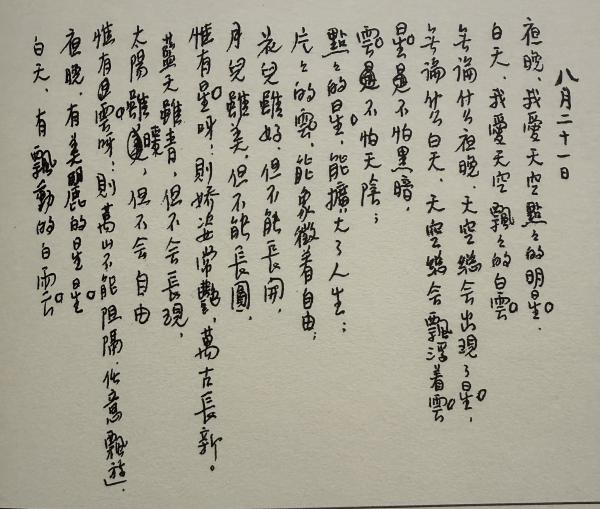 八月二十一日
夜晚,我愛天空點々的明星,
白天,我愛天空飄々的白雲。
無論什么夜晚,天空總会出現了星。
無論什么白天,天空總会飄浮着雲。
星不怕黑暗,
雲不怕天陰;
點々的星,能擴大了人生;
片々的雲,能象徵着自由;
花兒雖好,但不能長開,
月兒雖美,但不能長圓,
惟有星呀:則嬌姿常艷,萬古長新。
藍天雖青,但不会長現,
太陽雖暖,但不会自由
惟有雲呀:則萬山不能阻隔,任意飄遊.
夜晚,有美麗的星星。
白天,有飄動的白雲。